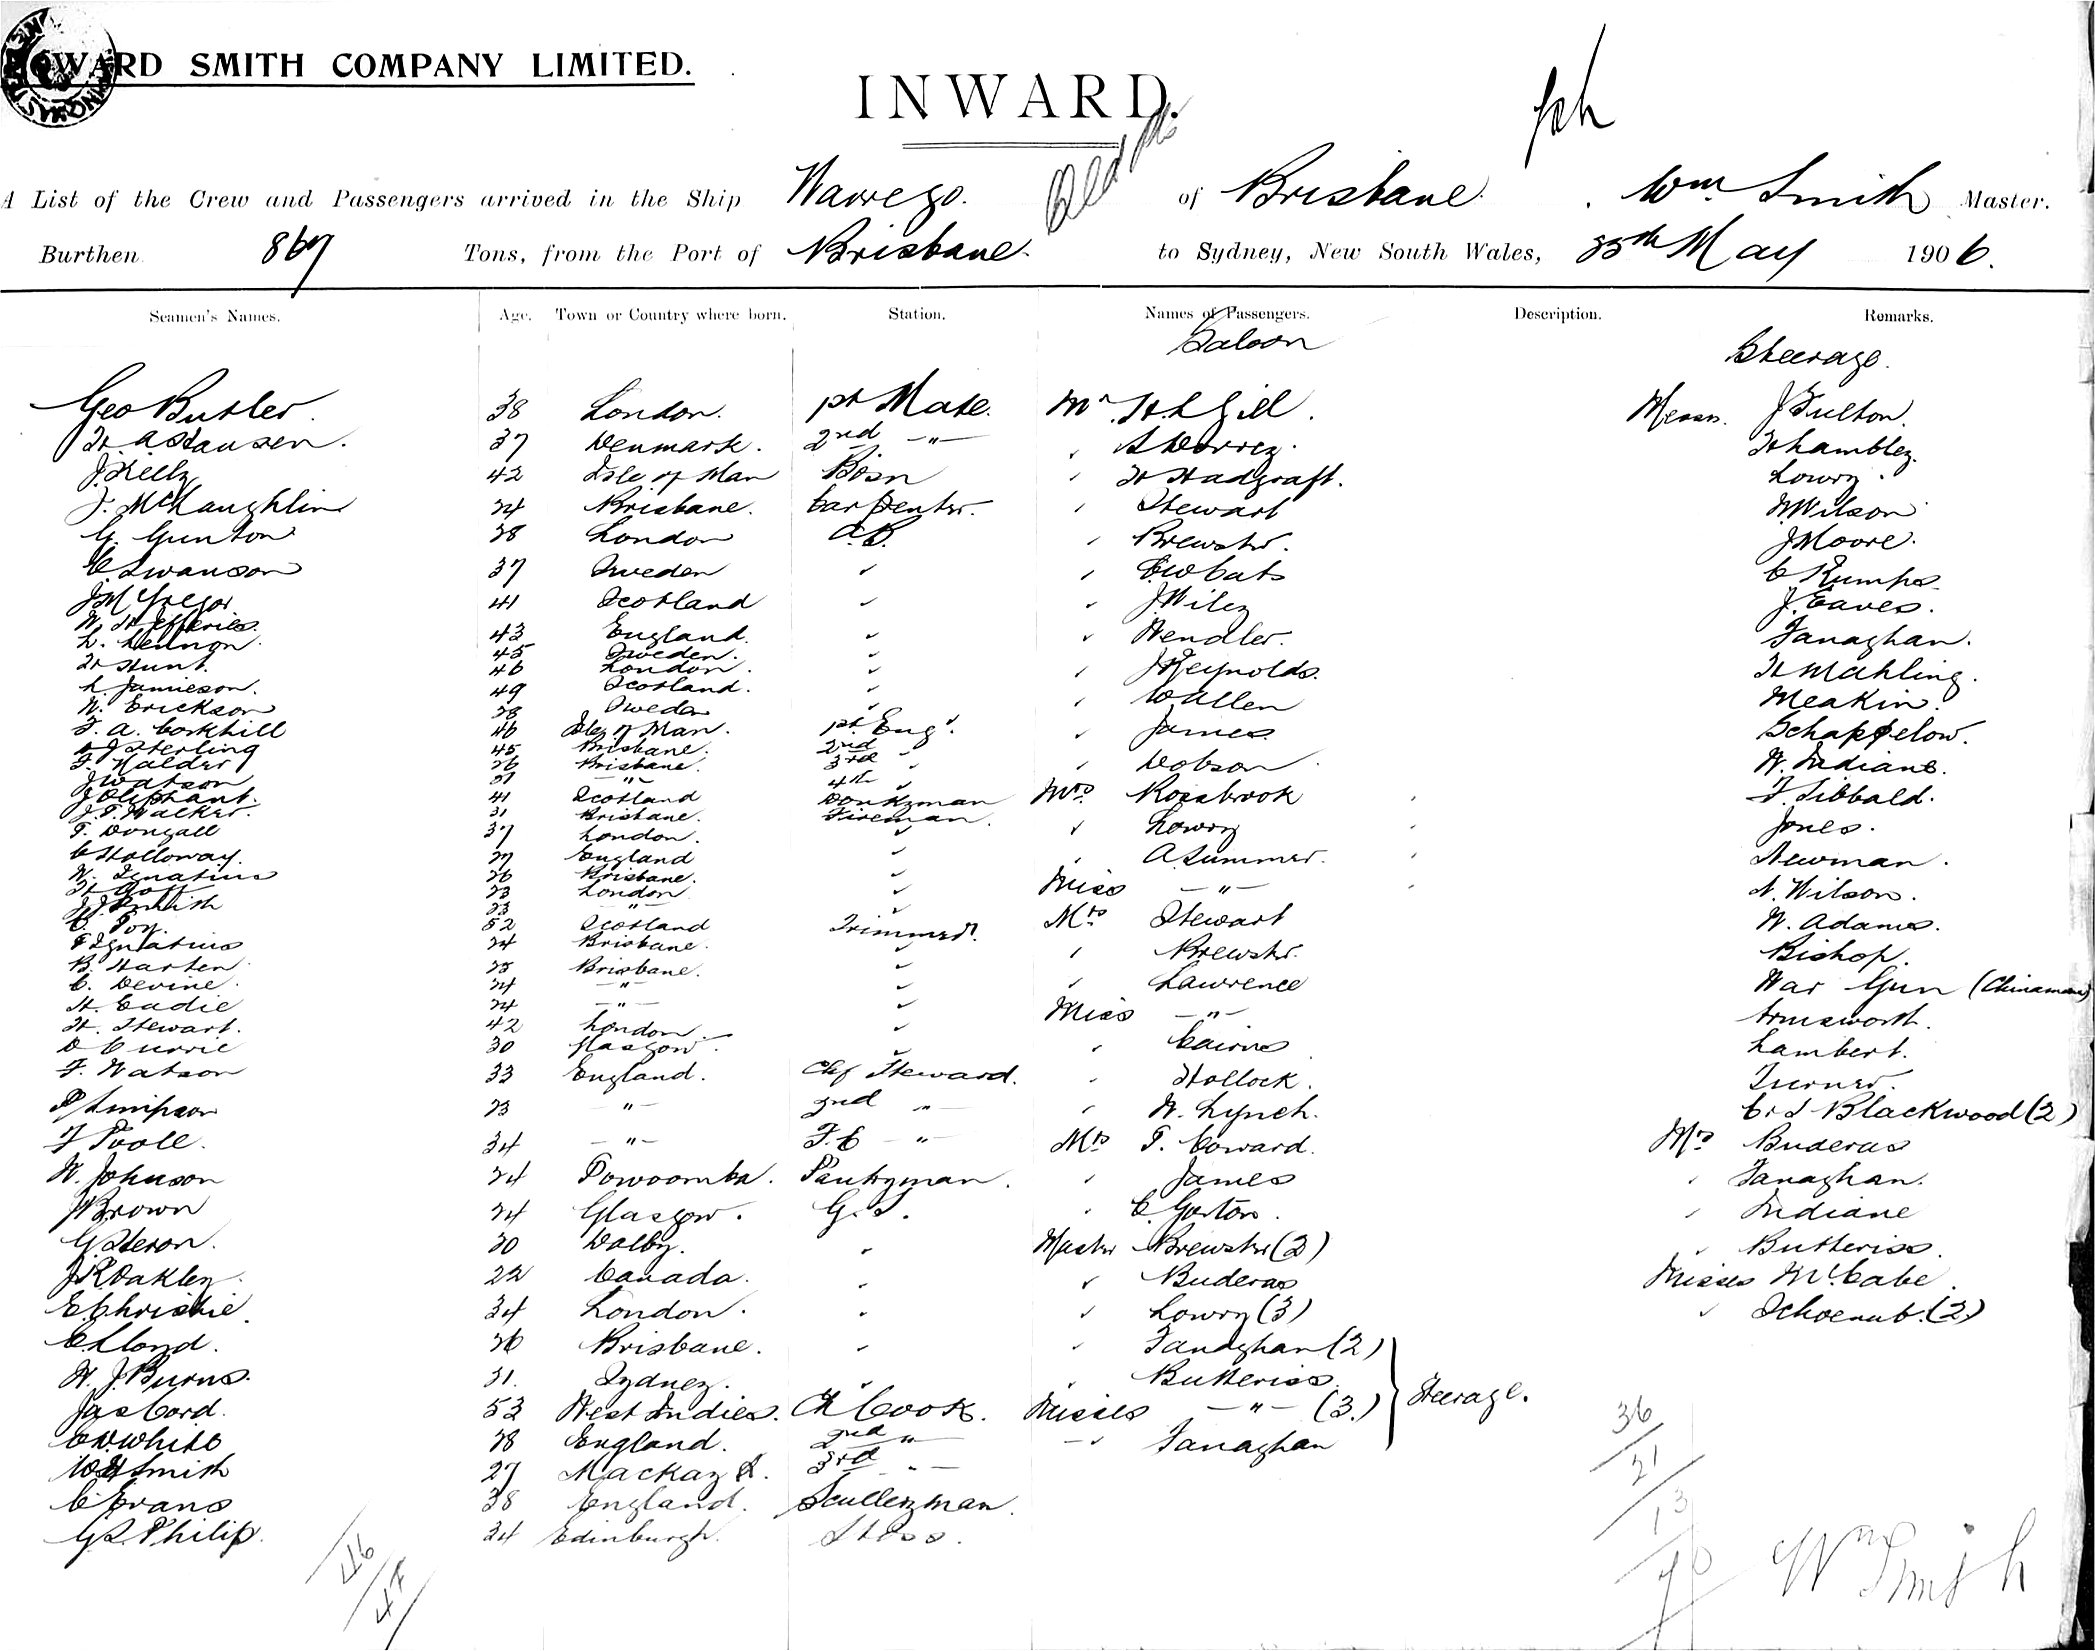 WARD SMITH COMPANY LIMITED.
INWARD.
A List of the Crew and Passengers arrived in the Ship Wawego. of Brisbane. Wm Smith Master.
Burthen 867 Tons, from the Port of Brisbane. to Sydney, New South Wales, 25th May 1906.
Seamen's Names. Age. Town or Country where born. Station. Names of Passengers. Description. Remarks.
Saloon Steerage.
Geo Butler. 38 London. 1st Mate. Mr H.L Gill. Messrs. J Fulton.
H. A Hansen. 37 Denmark. 2nd -"- A Dorrey. Hambley.
J. Kelly 42 Isle of Man Bosn H Hadgraft. Lowry.
J. McLaughlin 24 Brisbane. Carpenter. Stewart W Wilson
G. Gunton 28 London A.B. Brewster. J Moore.
C. Swanson 37 Sweden Cats C Kumps
J McGregor 41 Scotland J Wiley J. Eaves.
W. H Jefferies. 43 England. Hendler. Fanaghan.
L. Lennon. 45 Sweden.
H Hunt. 46 London. J Reynolds. H Mahling.
L. Jamieson. 49 Scotland.
N. Erickson 28 Sweden W Allen Meakin.
F. A. Corkhill 46 Isle of Man. 1st Eng. James Schappelow.
J Sterling 45 Brisbane. 2nd "
F. Halder 26 Brisbane. 3rd " Dobson W. Indiane.
J Watson 21 -"- 4th "
J Oliphant. 41 Scotland Donkyman Mrs Rossbrook F. Sibbald.
J. T. Walker. 31 Brisbane. Fireman.
T. Dougall 37 London. Lowry Jones.
C Holloway. 27 England A. Summer. Newman.
W. Ignatius 26 Brisbane.
H Gott 23 London Miss -"- N. Wilson.
J.J. Smith 23 -"-
C. Toy. 52 Scotland Trimmer. Mrs Stewart W. Adams.
T Ignatius 24 Brisbane. Brewster. Bishop.
B. Harten 25 Brisbane.
C. Devine. 24 -"- Lawrence War Gun (Chinaman)
H. Eadie 24 -"- Miss -"- Armsworth.
H. Stewart. 42 London.
D Currie 30 Glasgow. Cairns Lambert.
F. Watson 33 England. Chf Steward. Hollock. Turner.
P Simpson 23 -"- 2nd -"- W. Lynch. C & J Blackwood (2)
F Poole. 34 -"- F.C -"- Mrs T. Coward. Mrs Buderas
W. Johnson 24 Towoomba. Pantryman. James Fanaghan.
J Brown 24 Glasgow. G.S. C Gorton. Indiane
G. Heron. 20 Dalby. Master Brewster (2) Butteriss.
J R Oakley. 22 Canada. Buderas Misses McCabe
E. Christie. 34 London. Lowry (3) Schoenub. (2)
E Lloyd. 26 Brisbane. Fanaghan (2)
W. J. Burns. 31. Sydney. Butteriss.
Jas Cord. 53 West Indies. Ch Cook. Misses -"- (3.) Steerage.
C. W. White 28 England. 2nd " Fanaghan
W H Smith 27 Mackay Q. 3rd -"-
C Evans 38 England. Sculleryman.
G. S. Philip. 34 Edinburgh. Stess.
36
21
13
70
46
47
Wm Smith